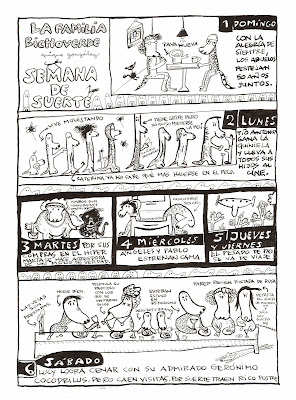 LA FAMILIA
BICHOVERDE
SEMANA
DE
SUERTE
1 DOMINGO
CON LA
ALEGRÍA DE
SIEMPRE,
LOS ABUELOS
FESTEJAN
50 AÑOS
JUNTOS.
VIVE MOLESTANDO
2 LUNES
TÍO ANTONIO
GANA LA
QUINIELA
Y LLEVA A
TODOS SUS
HIJOS AL
CINE.
CATERINA YA NO SABE QUÉ MÁS HACERSE EN EL PELO.
3 MARTES
POR SUS
COMPRAS EN EL HIPER,
4 MIÉRCOLES
ANGELES Y PABLO
ESTRENAN CAMA.
5 JUEVES
Y
VIERNES
EL PESADO DE
SE VA DE VIAJE
HUELE BIEN.
ESTEBAN
PARED RECIÉN PINTADA DE ROSA
6 SÁBADO
LUCY LOGRA CENAR CON SU ADMIRADO GERÓNIMO
COCODRILUS. PERO CAEN VISITAS. POR SUERTE TRAEN RICO POSTRE